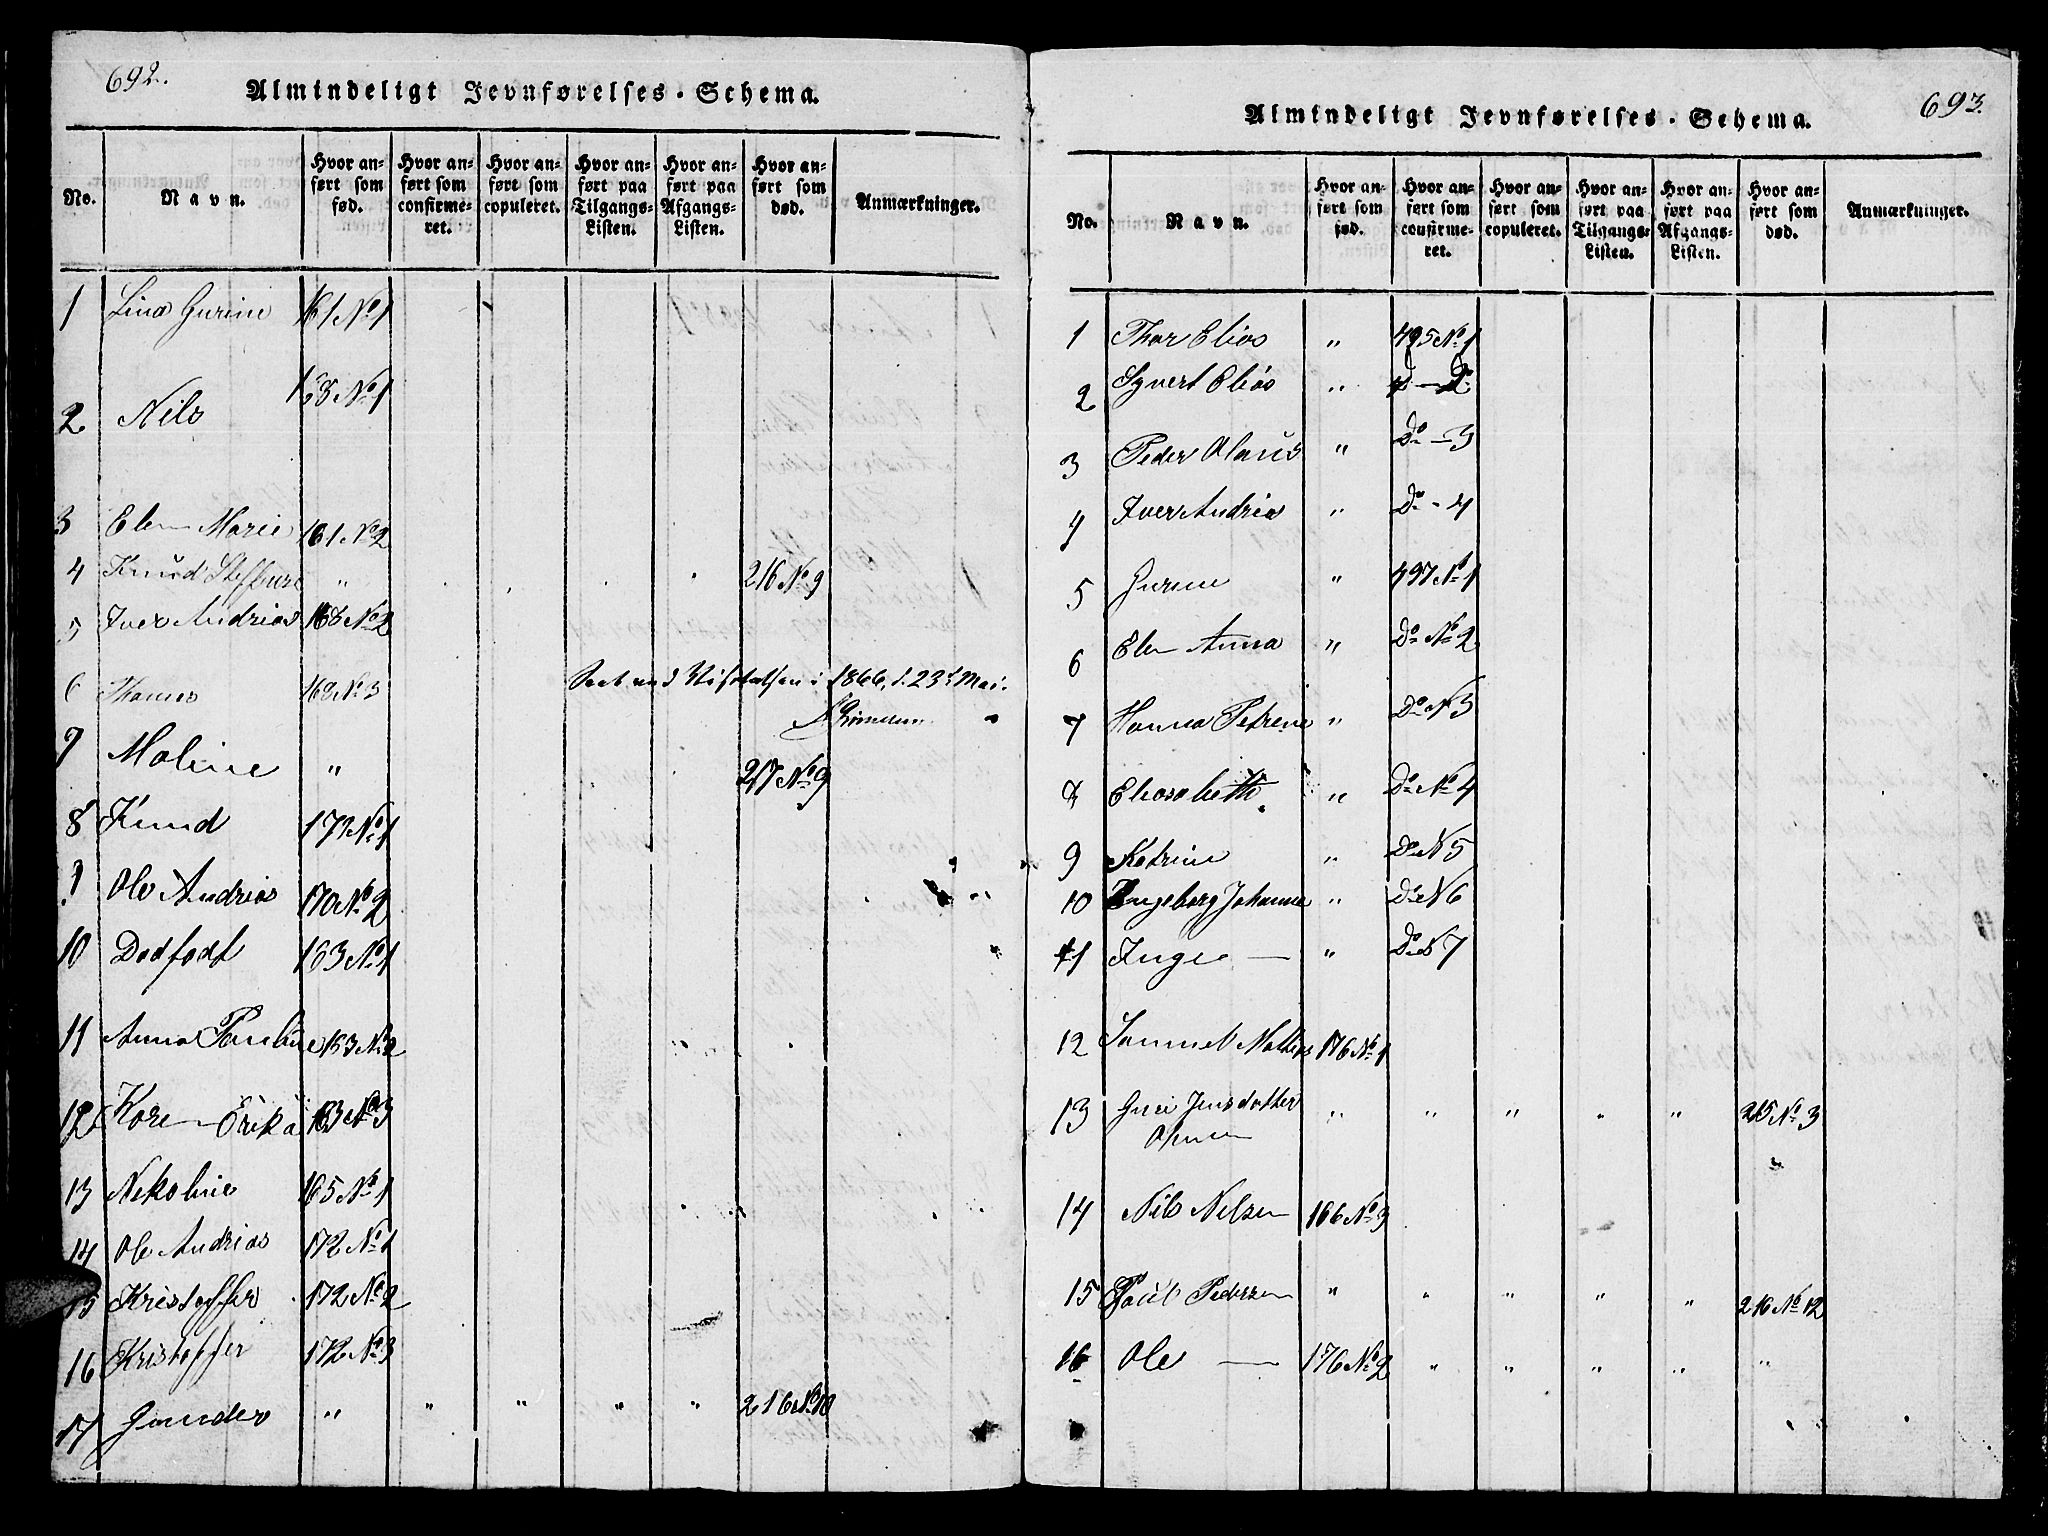 692.
Almindeligt Jevnførelses-Schema.
No. Navn. Hvor anført som fød. Hvor anført som confirmeret. Hvor anført som copuleret. Hvor anført paa Tilgangs-Listen. Hvor anført paa Afgangs-Listen. Hvor anført som død. Anmærkninger.
1 Lina Gurine 161 No 1
2 Nils 168 No 1
3 Elen Marie 161 No 2
4 Knud " 216 No 9
5 Iver Andrias 168 No 2
6 Thomas 168 No 3 Seet ved Visitatsen i 1866, d. 23d Mai.
7 Moline " 217 No 9
8 Knud 171 No 1
9 Ole Andrias 170 No 2
10 Dødfødt 163 No 1
11 Anna Pauline 163 No 2
12 Karen Erika 163 No 3
13 Nekoline 165 No 1
14 Ole Andrias 172 No 1
15 Kristoffer 172 No 2
16 Kristoffer 172 No 3
17 Gunder " " " " " 216 No 10
693.
Almindeligt Jevnførelses-Schema.
No. Navn. Hvor anført som fød. Hvor anført som confirmeret. Hvor anført som copuleret. Hvor anført paa Tilgangs-Listen. Hvor anført paa Afgangs-Listen. Hvor anført som død. Anmærkninger.
1 Thor Elias " 495 No 1
2 Syvert Elias " 2
3 Peder Olaus " Do - 3
4 Iver Andrias " Do - 4
5 Gurine " 497 No 1
6 Elen Anna " Do No 2
7 Hanna Petrene " Do N 3
8 Elisabeth " Do No 4
9 Katrine " Do N 5
10 Ingeborg Johanne " Do N 6
11 Inger — " Do N 7
12 Samuel Mathias 176 No 1
13 Guri Jensdotter " " " " " 215 No 3
14 Nils Nelsen 166 No 3
15 Poul Pedersen " " " " " 216 No 12
16 Ole — 176 No 2 " " " " "